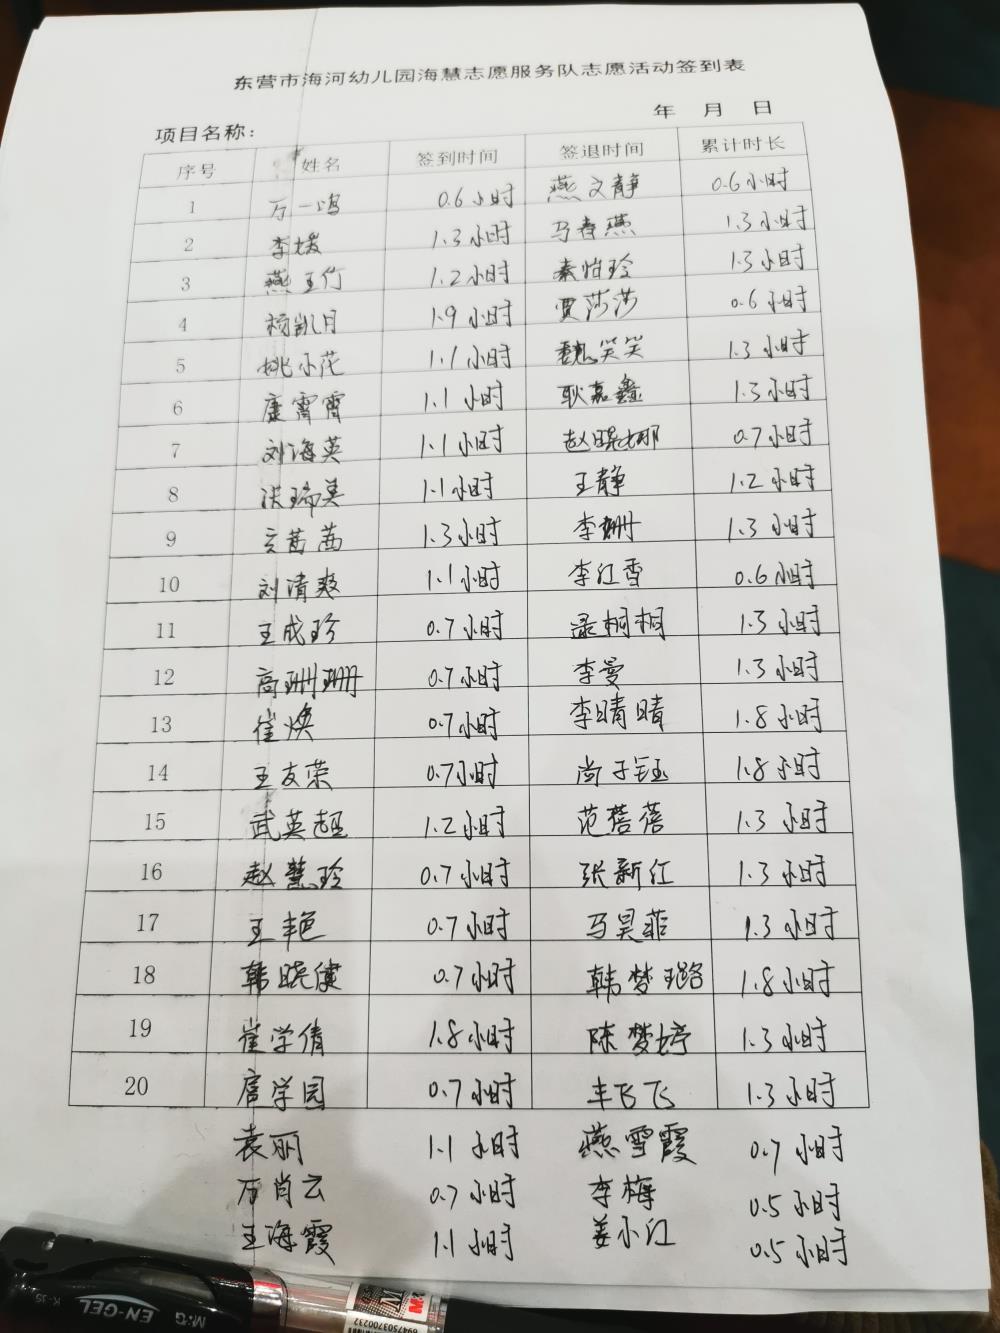 东营市海河幼儿园海慧志愿服务队志愿活动签到表
项目名称： 年 月 日
序号 姓名 签到时间 签退时间 累计时长
1 万一鸣 0.6小时 燕文静 0.6小时
2 李媛 1.3小时 马春燕 1.3小时
3 燕玉竹 1.2小时 秦怡玲 1.3小时
4 杨凯月 1.9小时 贾莎莎 0.6小时
5 姚小花 1.1小时 魏笑笑 1.3小时
6 康霄霄 1.1小时 耿嘉鑫 1.3小时
7 刘海英 1.1小时 赵晓娜 0.7小时
8 洪瑞美 1.1小时 王静 1.2小时
9 茜茜 1.3小时 李姗 1.3小时
10 刘清爽 1.1小时 李红香 0.6小时
11 王成珍 0.7小时 桐桐 1.3小时
12 高珊珊 0.7小时 李曼 1.3小时
13 崔焕 0.7小时 李晴晴 1.8小时
14 王友荣 0.7小时 尚子钰 1.8小时
15 武英超 1.2小时 范蓓蓓 1.3小时
16 赵慧玲 0.7小时 张新红 1.3小时
17 王艳 0.7小时 马昊菲 1.3小时
18 韩晓健 0.7小时 韩梦璐 1.8小时
19 崔学倩 1.8小时 陈梦婷 1.3小时
20 扈学园 0.7小时 丰飞飞 1.3小时
袁丽 1.1小时 燕雪霞 0.7小时
万肖云 0.7小时 李梅 0.5小时
王海霞 1.1小时 姜小红 0.5小时
M&G EN-GEL K-35
6947503700232